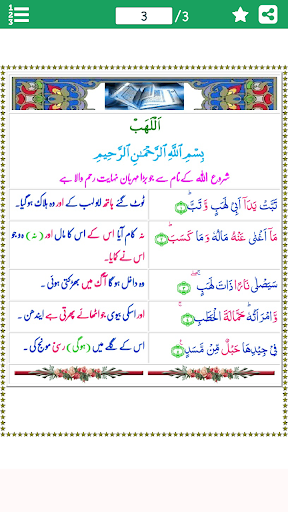 1
2
3
3
/3
اَللَّهَبْ
بِسْمِ اللّٰهِ الرَّحْمٰنِ الرَّحِيْمِ
شروع اللہ کے نام سے جو بڑا مہربان نہایت رحم والا ہے
تَبَّتْ يَدَآ اَبِيْ لَهَبٍ وَّتَبَّ ۝۱
ٹوٹ گئے ہاتھ ابولہب کے اور وہ ہلاک ہوگیا۔
مَآ اَغْنٰى عَنْهُ مَالُهٗ وَمَا كَسَبَ ۝۲
نہ کام آیا اس کے اس کا مال اور (نہ) وہ جو اس نے کمایا۔
سَيَصْلٰى نَارًا ذَاتَ لَهَبٍ ۝۳
وہ داخل ہو گا آگ میں بھڑکتی ہوئی۔
وَّامْرَاَتُهٗ ۭ حَمَّالَةَ الْحَطَبِ ۝۴
اور اسکی بیوی جو اٹھائے پھرتی ہے ایندھن۔
فِيْ جِيْدِهَا حَبْلٌ مِّنْ مَّسَدٍ ۝۵
اس کے گلے میں (ہوگی) رسی مونج کی۔